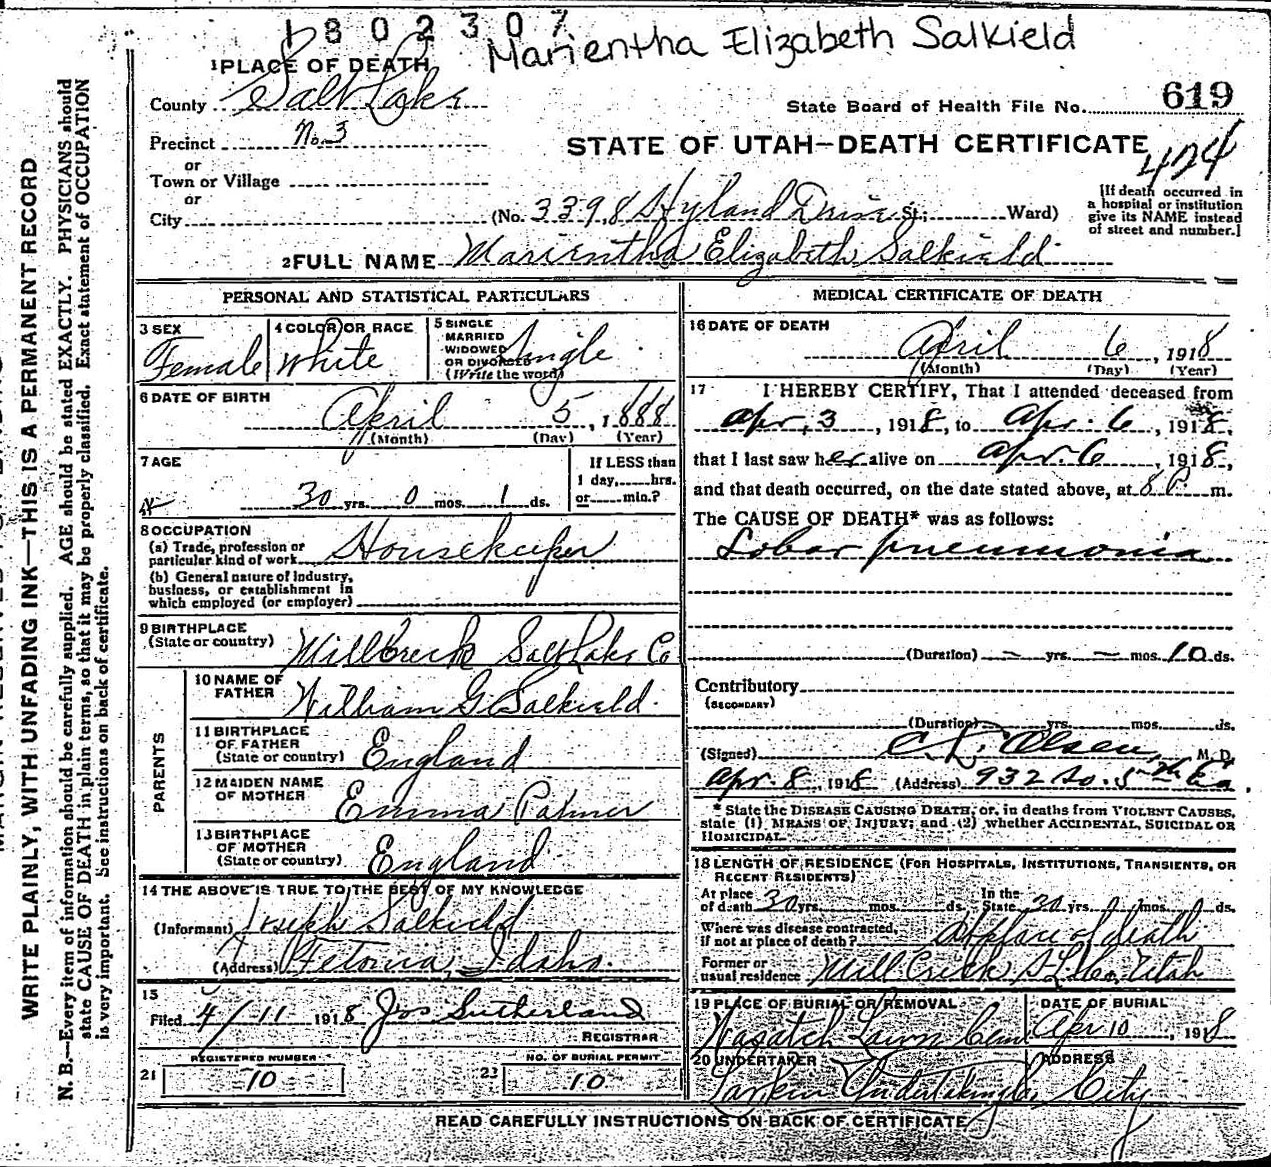 1802307
Marientha Elizabeth Salkield
1 PLACE OF DEATH
County Salt Lake
State Board of Health File No. 619
Precinct No. 3
STATE OF UTAH—DEATH CERTIFICATE
424
or
Town or Village
or
City (No. 3398 Hyland Drive St; Ward)
[If death occurred in
a hospital or institution
give its NAME instead
of street and number.]
2 FULL NAME Marientha Elizabeth Salkield
PERSONAL AND STATISTICAL PARTICULARS
3 SEX Female
4 COLOR OR RACE White
5 SINGLE
MARRIED
WIDOWED
OR DIVORCED
(Write the word) Single
6 DATE OF BIRTH
April 5, 1888
(Month) (Day) (Year)
7 AGE
30 yrs. 0 mos. 1 ds.
If LESS than
1 day, hrs.
or min.?
8 OCCUPATION
(a) Trade, profession or
particular kind of work Housekeeper
(b) General nature of industry,
business, or establishment in
which employed (or employer)
9 BIRTHPLACE
(State or country) Millcreek Salt Lake Co
PARENTS
10 NAME OF
FATHER William G Salkield
11 BIRTHPLACE
OF FATHER
(State or country) England
12 MAIDEN NAME
OF MOTHER Emma Palmer
13 BIRTHPLACE
OF MOTHER
(State or country) England
14 THE ABOVE IS TRUE TO THE BEST OF MY KNOWLEDGE
(Informant) Joseph Salkield
(Address) Fetonia, Idaho.
15
Filed 4/11 1918 Jos Sutherland
REGISTRAR
REGISTERED NUMBER
21 10
NO. OF BURIAL PERMIT
10
MEDICAL CERTIFICATE OF DEATH
16 DATE OF DEATH
April 6, 1918
(Month) (Day) (Year)
17 I HEREBY CERTIFY, That I attended deceased from
Apr. 3, 1918, to Apr. 6, 1918,
that I last saw her alive on Apr. 6, 1918,
and that death occurred, on the date stated above, at 8 P m.
The CAUSE OF DEATH* was as follows:
Lobar pneumonia
(Duration) — yrs. — mos. 10 ds.
Contributory
(SECONDARY)
(Duration) yrs. mos. ds.
(Signed) C. L. Olsen, M. D.
Apr. 8, 1918 (Address) 932 So. 5th Ea.
* State the DISEASE CAUSING DEATH, or, in deaths from VIOLENT CAUSES,
state (1) MEANS OF INJURY; and (2) whether ACCIDENTAL, SUICIDAL OR
HOMICIDAL.
18 LENGTH OF RESIDENCE (FOR HOSPITALS, INSTITUTIONS, TRANSIENTS, OR
RECENT RESIDENTS)
At place
of death 30 yrs. mos. ds.
In the
State 30 yrs. 0 mos. 1 ds.
Where was disease contracted,
if not at place of death? At place of death
Former or
usual residence Mill Creek S L Co, Utah
19 PLACE OF BURIAL OR REMOVAL
Wasatch Lawn Cem
DATE OF BURIAL
Apr 10, 1918
20 UNDERTAKER
Larkin Undertaking Co
ADDRESS
City
READ CAREFULLY INSTRUCTIONS ON BACK OF CERTIFICATE
WRITE PLAINLY, WITH UNFADING INK—THIS IS A PERMANENT RECORD
N. B.—Every item of information should be carefully supplied. AGE should be stated EXACTLY. PHYSICIANS should
state CAUSE OF DEATH in plain terms, so that it may be properly classified. Exact statement of OCCUPATION
is very important. See instructions on back of certificate.